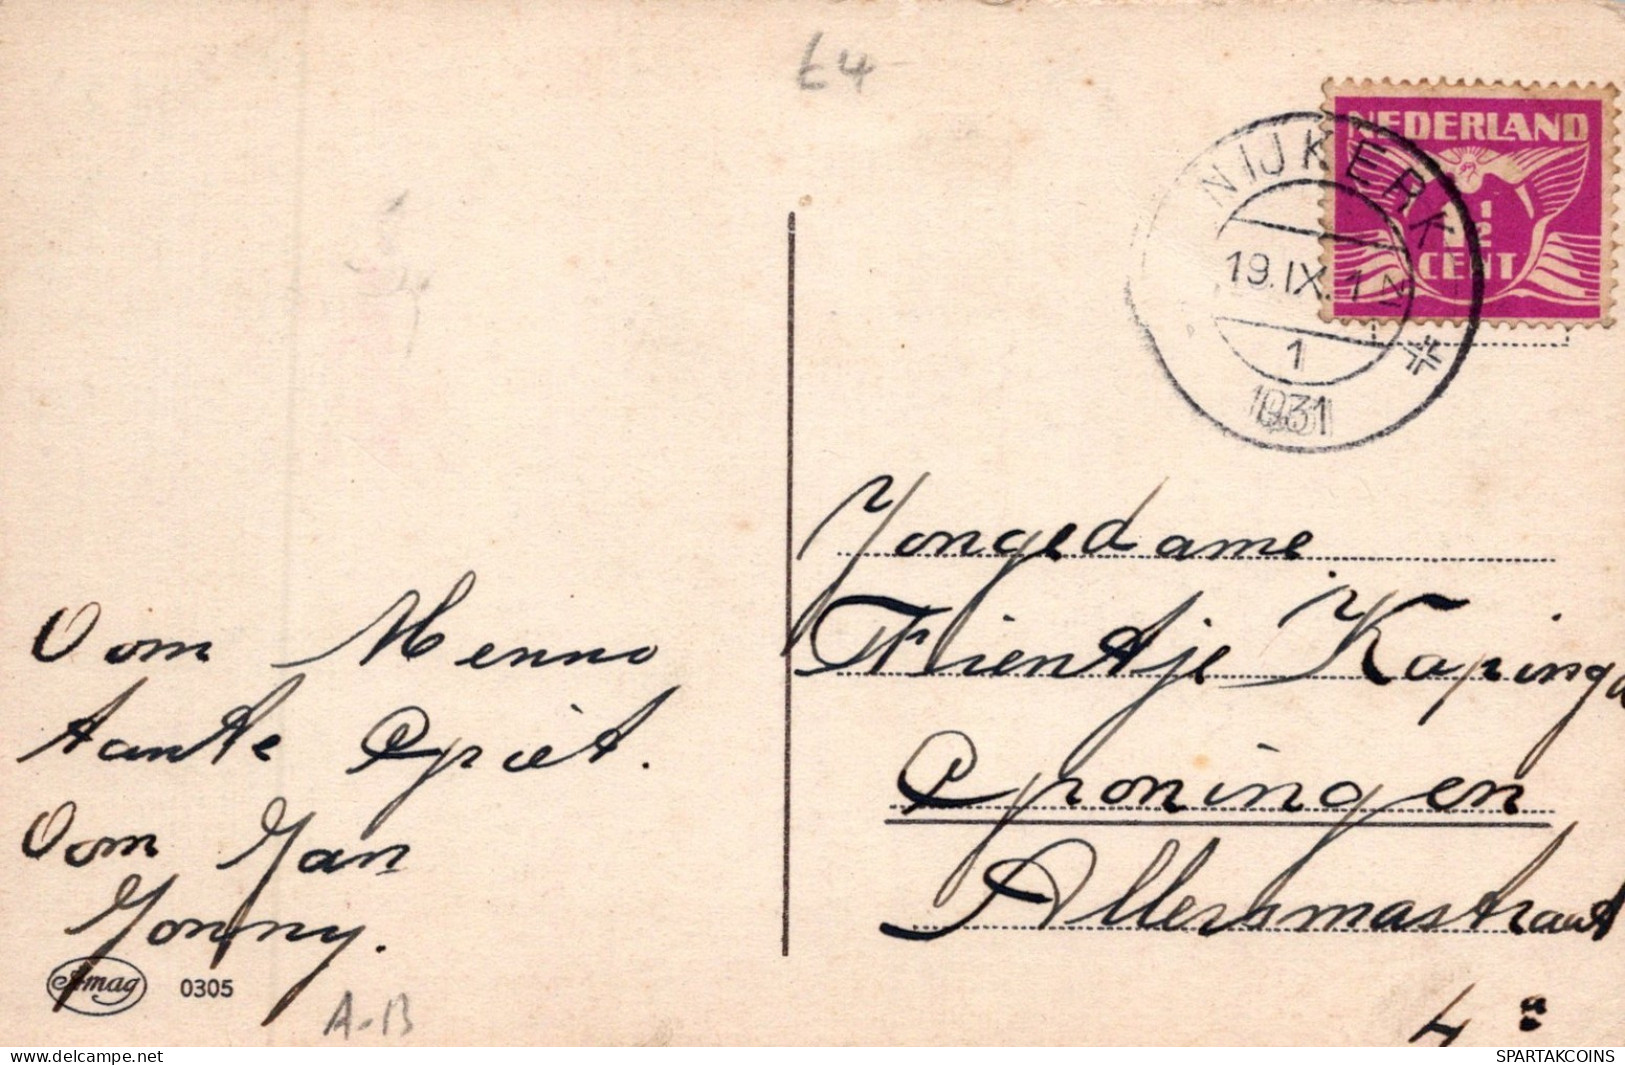 £4
NEDERLAND
1 1/2
CENT
NIJKERK
19.IX.1 N
1
1931
Jongedame
Fientje Kapinga
Groningen
Allersmastraat
4a
Oom Menno
tante Griet.
Oom Jan
Jonny.
Amag 0305
A-B
https://delcampe.net
SPARTAKCOINS